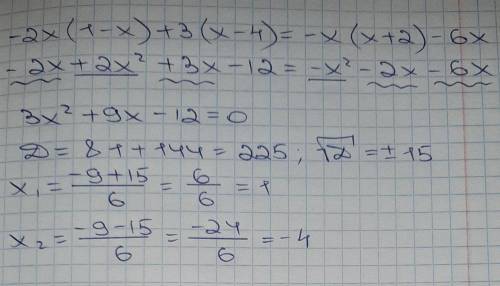 -2x(1-x)+3(x-4)=-x(x+2)-6x
-2x+2x²+3x-12=-x²-2x-6x
3x²+9x-12=0
D=81+144=225; √D=±15
x₁=(-9+15)/6=6/6=1
x₂=(-9-15)/6=-24/6=-4